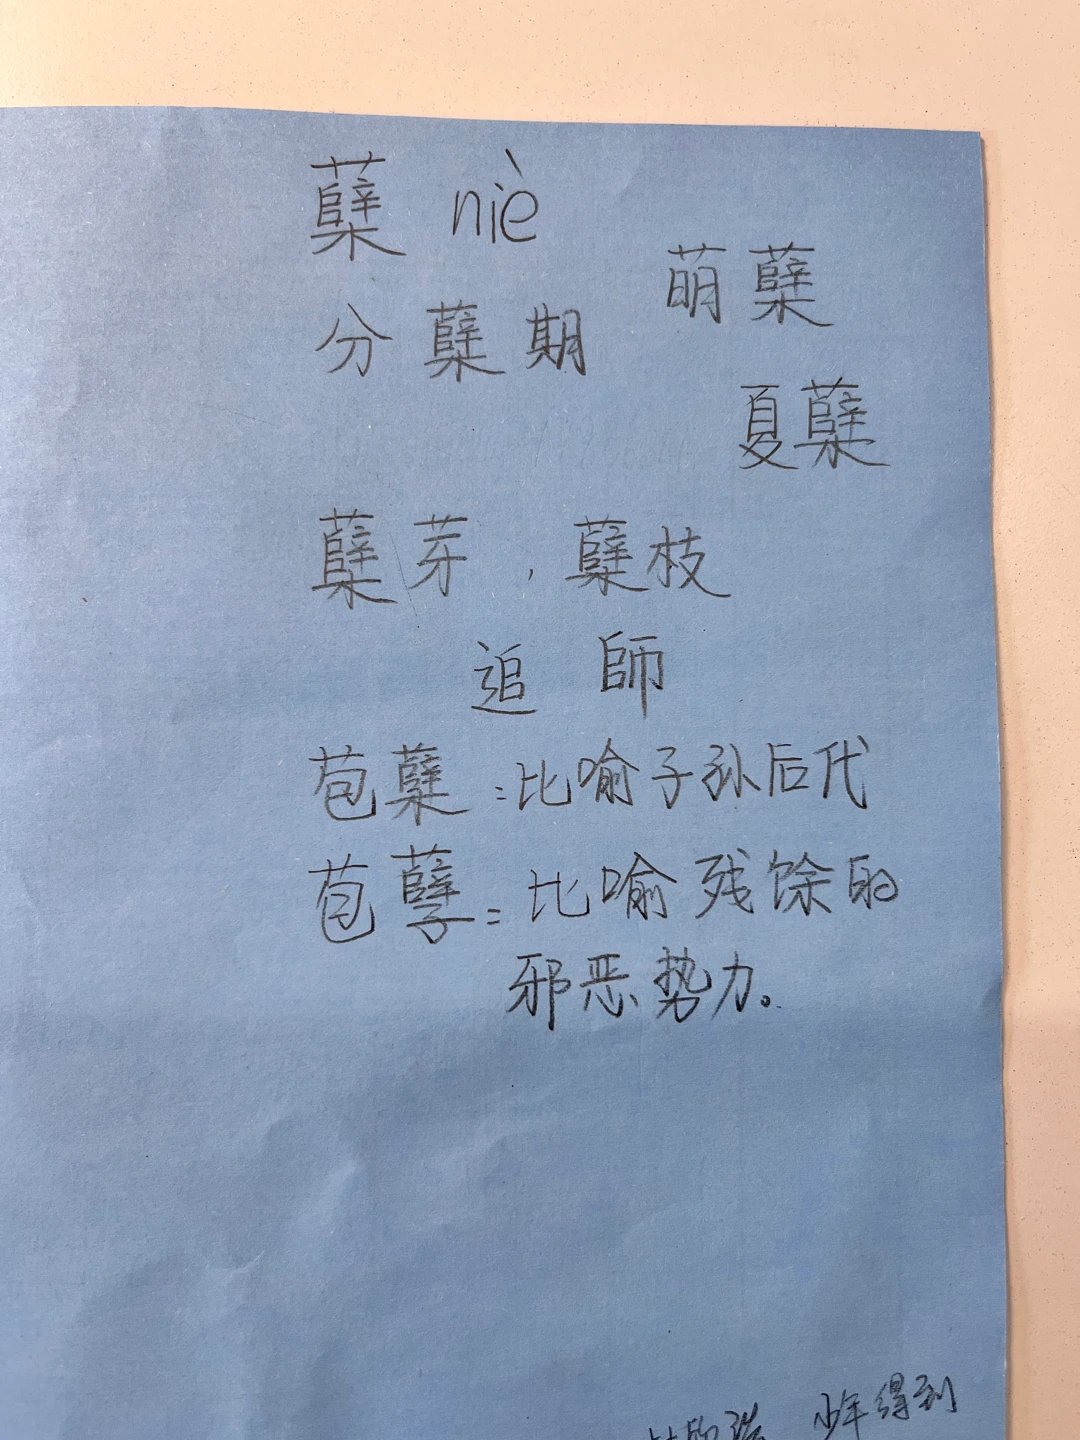 蘖 niè
萌蘖
分蘖期
夏蘖
蘖芽，蘖枝
追 師
苞蘖：比喻子孙后代
苞孽：比喻残馀的
邪恶势力。
少年得到